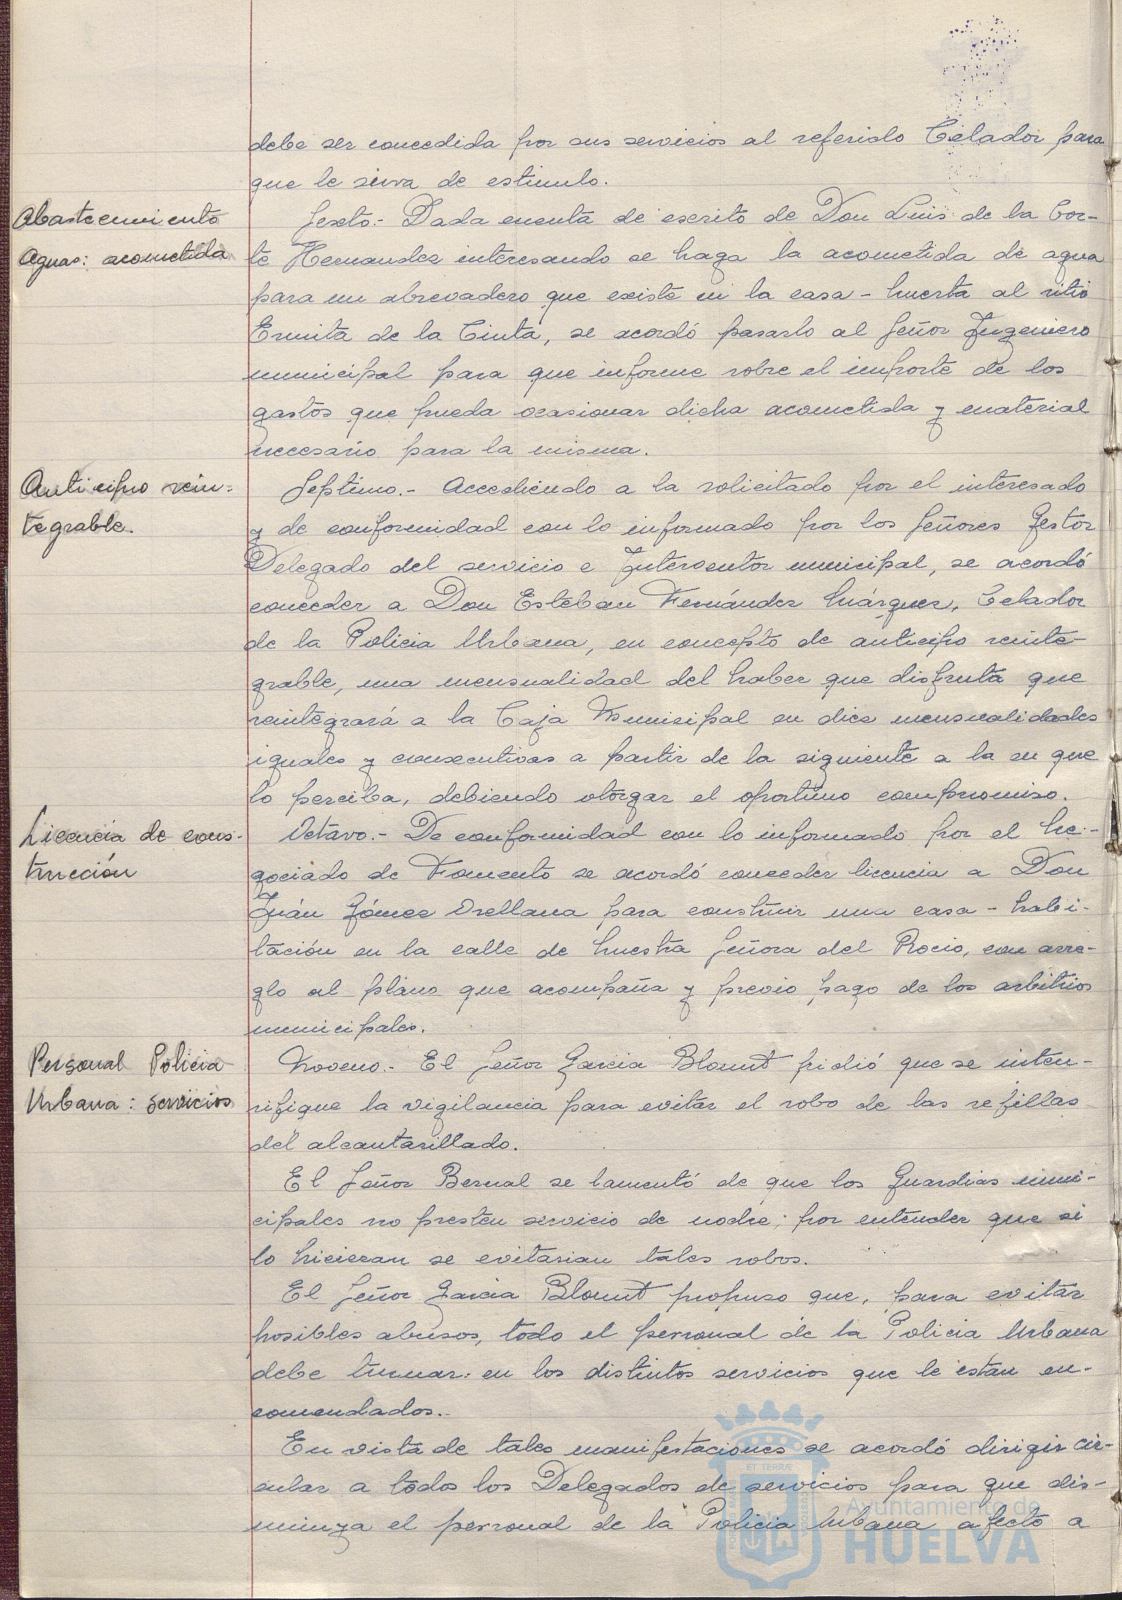 debe ser concedida por sus servicios al referido Celador para
que le sirva de estímulo.
Abastecimiento
Aguas: acometida
Sexto.- Dada cuenta de escrito de Don Luis de la Cor-
te Hernandez interesando se haga la acometida de agua
para un abrevadero que existe en la casa-huerta al sitio
Ermita de la Cinta, se acordó pasarlo al Señor Ingeniero
municipal para que informe sobre el importe de los
gastos que pueda ocasionar dicha acometida y material
necesario para la misma.
Anticipo rein-
tegrable.
Septimo.- Accediendo a la solicitado por el interesado
y de conformidad con lo informado por los Señores Gestor
Delegado del servicio e Interventor municipal, se acordó
conceder a Don Esteban Fernández Márquez, Celador
de la Policia Urbana, en concepto de anticipo reinte-
grable, una mensualidad del haber que disfruta que
reintegrará a la Caja Municipal en diez mensualidades
iguales y consecutivas a partir de la siguiente a la en que
lo perciba, debiendo otorgar el oportuno compromiso.
Licencia de cons-
trucción
Octavo.- De conformidad con lo informado por el Ne-
gociado de Fomento se acordó conceder licencia a Don
Juán Gómez Orellana para construir una casa-habi-
tación en la calle de Nuestra Señora del Rocio, con arre-
glo al plano que acompaña y previo pago de los arbitrios
municipales.
Personal Policia
Urbana: servicios
Noveno.- El Señor Garcia Blount pidió que se inten-
sifique la vigilancia para evitar el robo de las rejillas
del alcantarillado.
El Señor Bernal se lamentó de que los Guardias muni-
cipales no presten servicio de noche; por entender que si
lo hicieran se evitarian tales robos.
El Señor Garcia Blount propuso que, para evitar
posibles abusos, todo el personal de la Policia Urbana
debe turnar en los distintos servicios que le estan en-
comendados.-
En vista de tales manifestaciones se acordó dirigir cir-
cular a todos los Delegados de servicios para que dis-
minuya el personal de la Policia Urbana afecto a
Ayuntamiento de
HUELVA